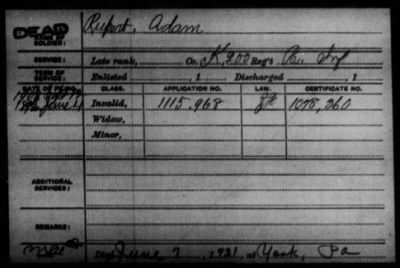 DEAD
NAME OF SOLDIER: Rupert, Adam
SERVICE: Late rank, Co. K, 200 Reg't Pa. Inf
TERM OF SERVICE: Enlisted , 1 Discharged , 1
DATE OF FILING. CLASS. APPLICATION NO. LAW. CERTIFICATE NO.
June 4 Invalid, 1115,968 1078,360
Widow,
Minor,
ADDITIONAL SERVICES:
REMARKS:
Died June 7, 1921, at York, Pa